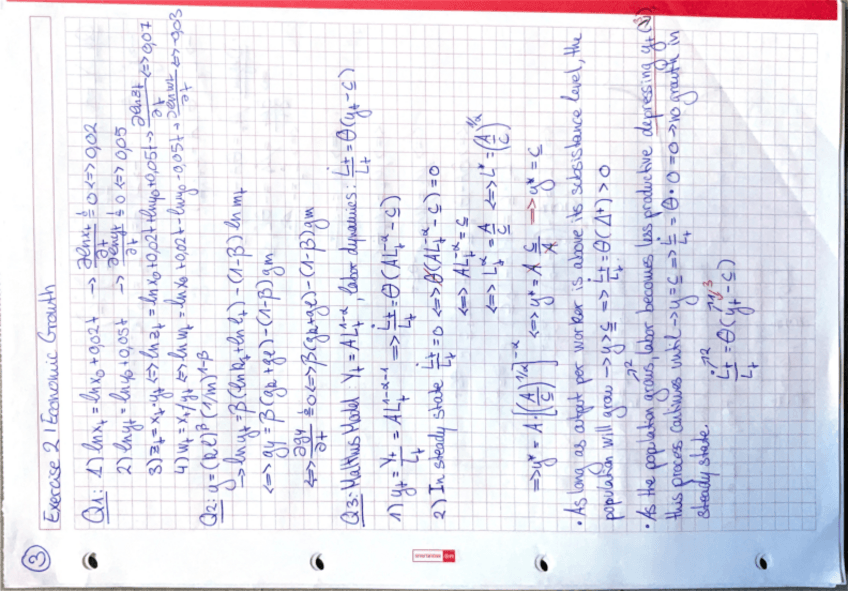 ③
Exercise 2 | Economic Growth
Q1: 1) ln x_t = ln x_0 + 0,02t → ∂ln x_t/∂t = 0 <=> 0,02
2) ln y_t = ln y_0 + 0,05t → ∂ln y_t/∂t = 0 <=> 0,05
3) z_t = x_t · y_t <=> ln z_t = ln x_0 + 0,02t + ln y_0 + 0,05t → ∂ln z_t/∂t <=> 0,07
4) w_t = x_t / y_t <=> ln w_t = ln x_0 + 0,02t - ln y_0 - 0,05t → ∂ln w_t/∂t <=> -0,03
Q2: y = (k l)^β (1/m)^1-β
→ ln y_t = β (ln k_t + ln l_t) - (1-β) ln m_t
<=> gy = β (gk + ge) - (1-β) gm
<=> ∂gy/∂t = 0 <=> β (gk + ge) - (1-β) gm
Q3: Malthus Model Y_t = AL^1-α, labor dynamics: L̇_t/L_t = θ (y_t - c)
1) y_t = Y_t/L_t = AL_t^1-α-1 => L̇_t/L_t = θ (AL_t^-α - c)
2) In steady state L̇_t/L_t = 0 <=> θ (AL_t^-α - c) = 0
<=> AL_t^-α = c
<=> L_t^α = A/c <=> L* = (A/c)^1/α
=> y* = A · [(A/c)^1/α]^-α <=> y* = A c/A => y* = c
• As long as output per worker is above its subsistance level, the
population will grow → y > c => L̇_t/L_t = θ (Δ+) > 0
• As the population grows, labor becomes less productive depressing y_t (↓)
this process continues until → y = c => L̇/L_t = θ · 0 = 0 → no growth in
steady state.
L̇_t/L_t = θ (y_t - c)
smartstore